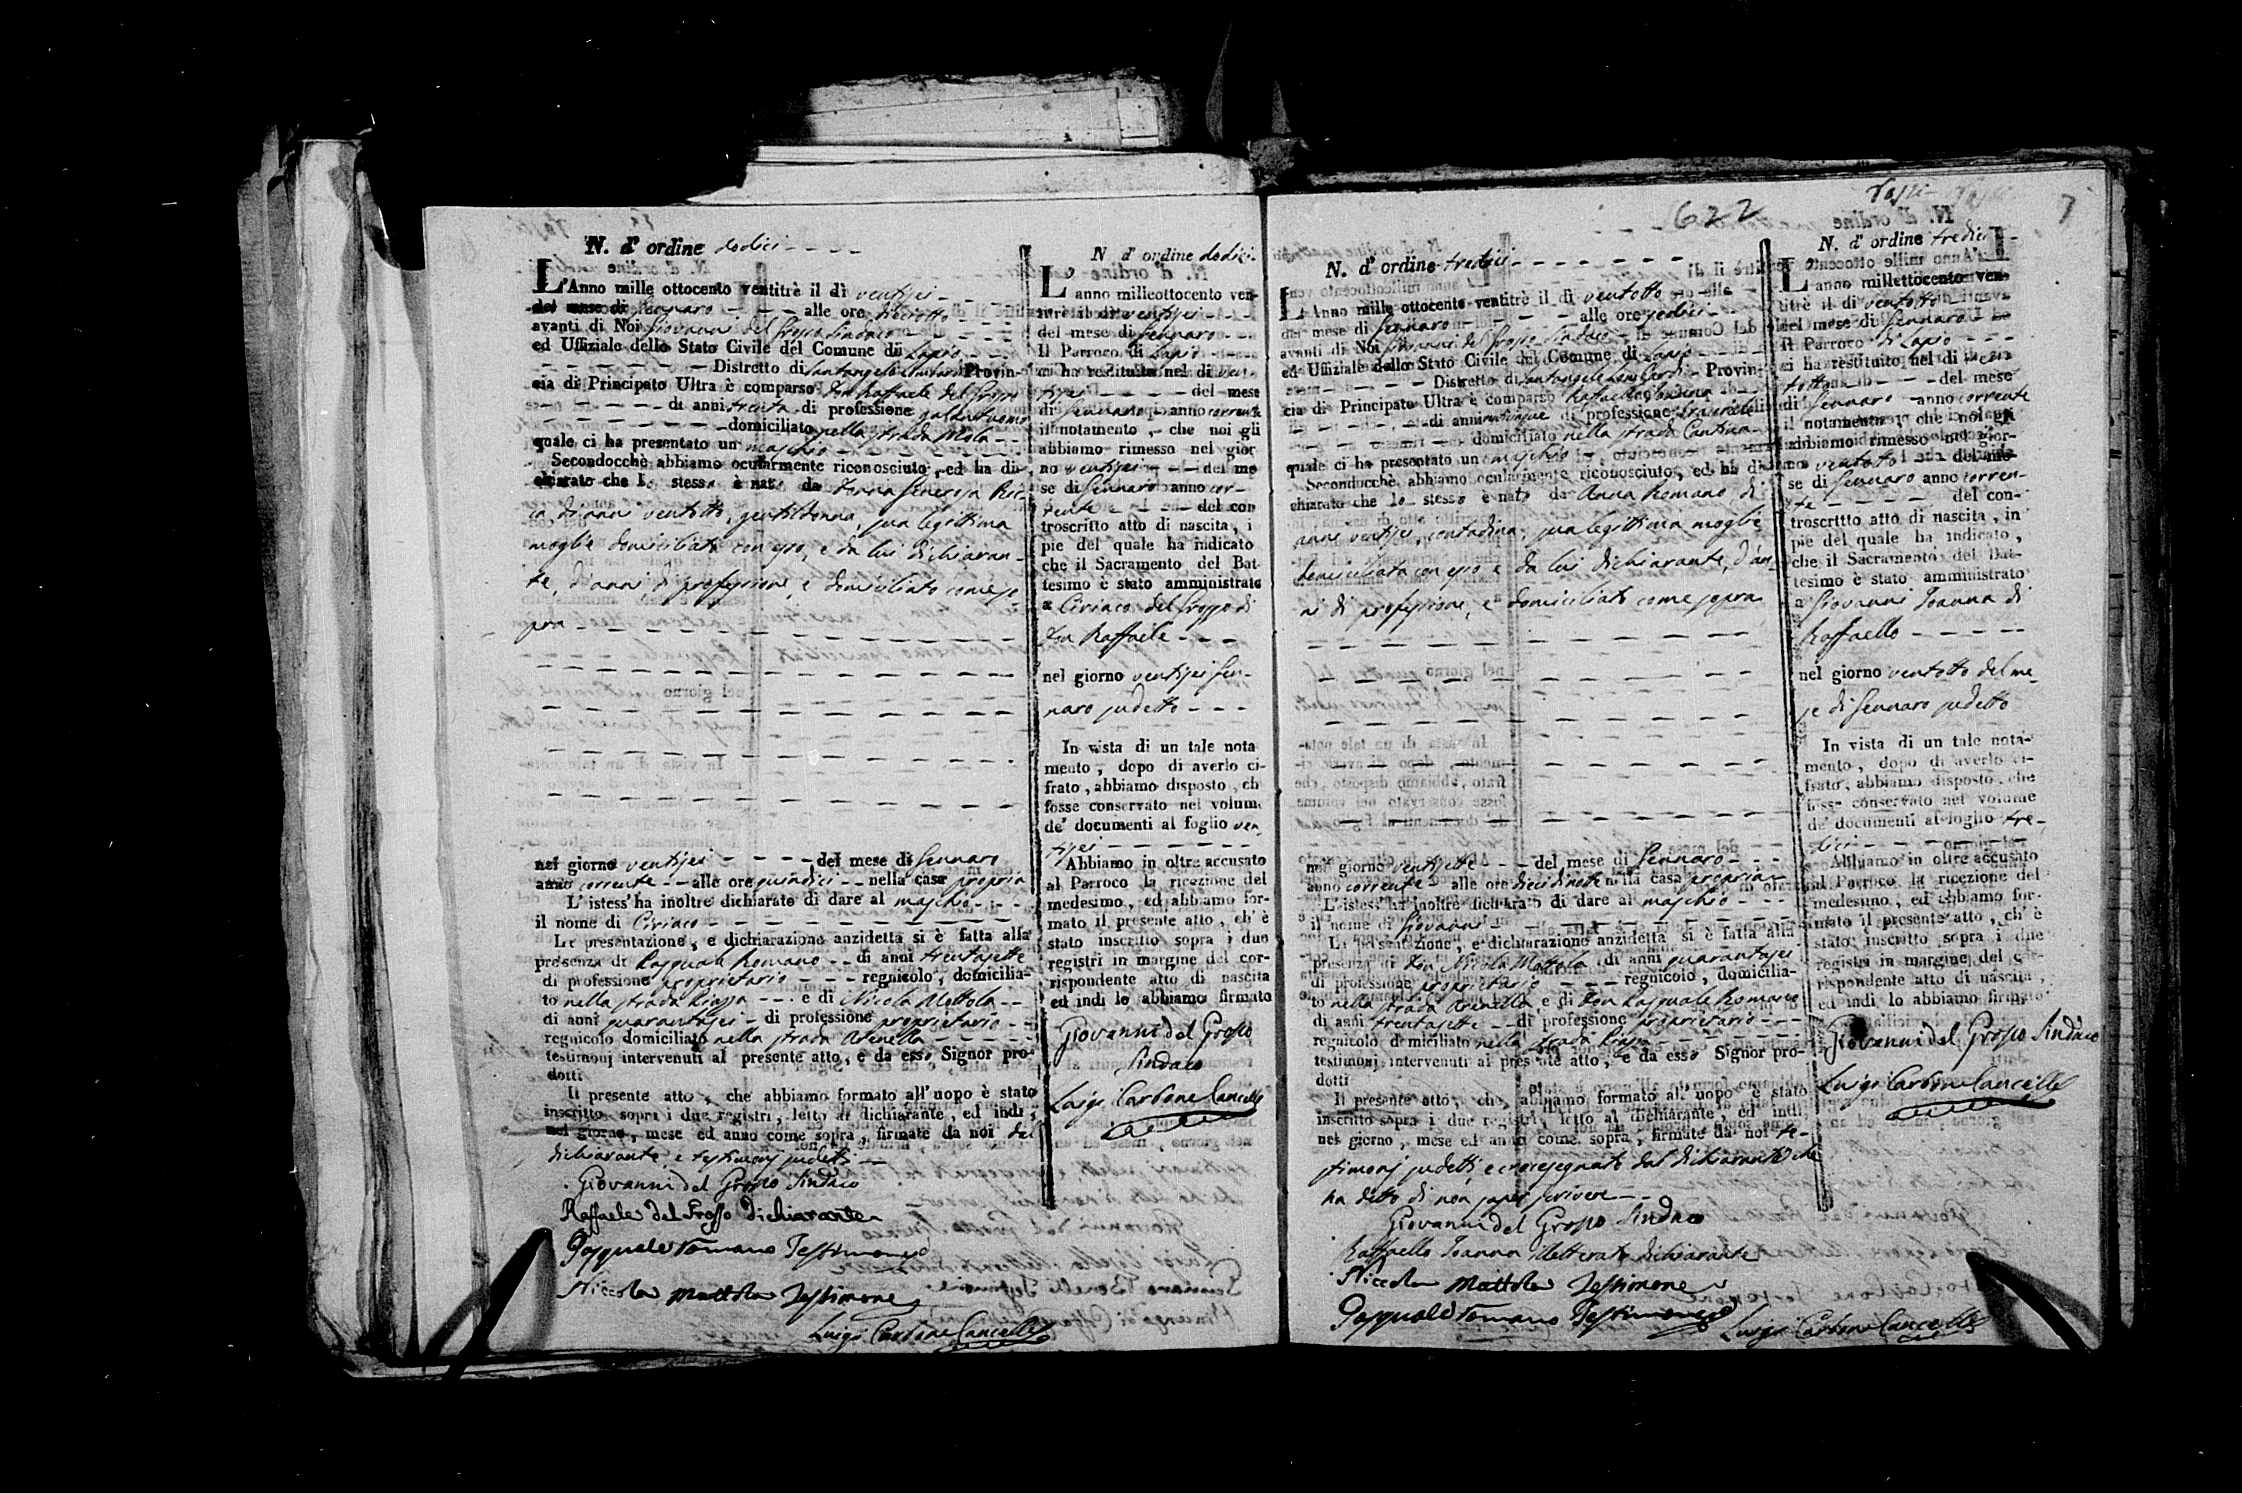 N. d' ordine dodici
L'Anno mille ottocento ventitrè il dì ventisei
del mese di Gennaro alle ore diciotto
avanti di Noi Giovanni del Grosso Sindaco
ed Uffiziale dello Stato Civile del Comune di Lapio
Distretto di Santangelo Lombardi Provin-
cia di Principato Ultra è comparso Don Raffaele del Grosso
di anni trenta di professione galantuomo
domiciliato nella strada Mola
quale ci ha presentato un maschio
Secondocchè abbiamo ocularmente riconosciuto, ed ha di-
chiarato che lo stesso è nato da Donna Generosa
di anni ventotto, gentildonna, sua legittima
moglie domiciliata con esso, e da lui dichiaran-
te, d'anni di professione, e domiciliato come so-
pra
nel giorno ventisei del mese di Gennaro
anno corrente alle ore quindici nella casa propria
L' istess' ha inoltre dichiarato di dare al maschio
il nome di Ciriaco
La presentazione, e dichiarazione anzidetta si è fatta alla
presenza di Pasquale Romano di anni trentasette
di professione proprietario regnicolo, domicilia-
to nella strada Piazza e di Nicola Mottola
di anni quarantasei di professione proprietario
regnicolo domiciliato nella strada Arenella
testimonj intervenuti al presente atto, e da esso Signor pro-
dotti
Il presente atto, che abbiamo formato all' uopo è stato
inscritto sopra i due registri, letto al dichiarante, ed indi,
nel giorno, mese ed anno come sopra, firmato da noi dal
dichiarante, e testimonj sudetti
Giovanni del Grosso Sindaco
Raffaele del Grosso dichiarante
Pasquale Romano Testimonio
Niccola Mottola Testimone
Luigi Carbone Cancelle
N d' ordine dodici
L' anno milleottocento ven-
titrè il di ventisei
del mese di Gennaro
Il Parroco di Lapio
ci ha restituito nel di ven-
tisei del mese
di Gennaro anno corrente
il notamento, che noi gli
abbiamo rimesso nel gior
no ventisei del me
se di Gennaro anno cor-
rente del con
troscritto atto di nascita, i
pie del quale ha indicato
che il Sacramento del Bat
tesimo è stato amministrato
a Ciriaco del Grosso di
Don Raffaele
nel giorno ventisei Gen-
naro sudetto
In vista di un tale nota
mento, dopo di averlo ci-
frato, abbiamo disposto, ch
fosse conservato nel volum
de' documenti al foglio ven
tisei
Abbiamo in oltre accusato
al Parroco la ricezione del
medesimo, ed abbiamo for-
mato il presente atto, ch' è
stato inscritto sopra i due
registri in margine del cor-
rispondente atto di nascita
ed indi lo abbiamo firmato
Giovanni del Grosso
Sindaco
Luigi Carbone Cancelle
622
7
N. d' ordine tredici
L'Anno mille ottocento ventitrè il dì ventotto
del mese di Gennaro alle ore sedici
avanti di Noi Giovanni del Grosso Sindaco
ed Uffiziale dello Stato Civile del Comune di Lapio
Distretto di Santangelo Lombardi Provin-
cia di Principato Ultra è comparso Raffaello Joanna
di anni di professione
domiciliato nella strada Cantina
quale ci ha presentato un maschio
Secondocchè abbiamo ocularmente riconosciuto, ed ha di-
chiarato che lo stesso è nato da Anna Romano di
anni ventisei, contadina, sua legittima moglie
domiciliata con esso e da lui dichiarante, d'an-
ni di professione, e domiciliato come sopra
nel giorno ventisette del mese di Gennaro
anno corrente alle ore diecidinote nella casa propria
L' istess' ha inoltre dichiarato di dare al maschio
il nome di Giovanni
La presentazione, e dichiarazione anzidetta si è fatta alla
presenza di Don Nicola Mottola di anni quarantasei
di professione proprietario regnicolo, domicilia-
to nella strada Arenella e di Don Pasquale Romano
di anni trentasette di professione proprietario
regnicolo domiciliato nella strada Piazza
testimonj intervenuti al presente atto, e da esso Signor pro-
dotti
Il presente atto, che abbiamo formato all' uopo è stato
inscritto sopra i due registri, letto al dichiarante, ed indi,
nel giorno, mese ed anno come sopra, firmato da noi te-
stimonj sudetti, e crocesegnato dal dichiarante che
ha detto di non saper scrivere
Giovanni del Grosso Sindaco
Raffaello Joanna illetterato dichiarante
Niccola Mottola Testimone
Pasquale Romano Testimonio
Luigi Carbone Cancelle
N. d' ordine tredici
L' anno millettocento ven-
titrè il di ventotto
del mese di Gennaro
Il Parroco di Lapio
ci ha restituito nel di ven-
totto del mese
di Gennaro anno corrente
il notamento, che noi gli
abbiamo rimesso nel gior-
no ventotto del me-
se di Gennaro anno corren-
te del con-
troscritto atto di nascita, in
pie del quale ha indicato,
che il Sacramento del Bat-
tesimo è stato amministrato
a Giovanni Joanna di
Raffaello
nel giorno ventotto del me-
se di Gennaro sudetto
In vista di un tale nota-
mento, dopo di averlo ci-
frato, abbiamo disposto, che
fosse conservato nel volume
de' documenti al foglio tre-
dici
Abbiamo in oltre accusato
al Parroco la ricezione del
medesimo, ed abbiamo for-
mato il presente atto, ch' è
stato inscritto sopra i due
registri in margine del cor-
rispondente atto di nascita,
ed indi lo abbiamo firmato
Giovanni del Grosso Sindaco
Luigi Carbone Cancelle